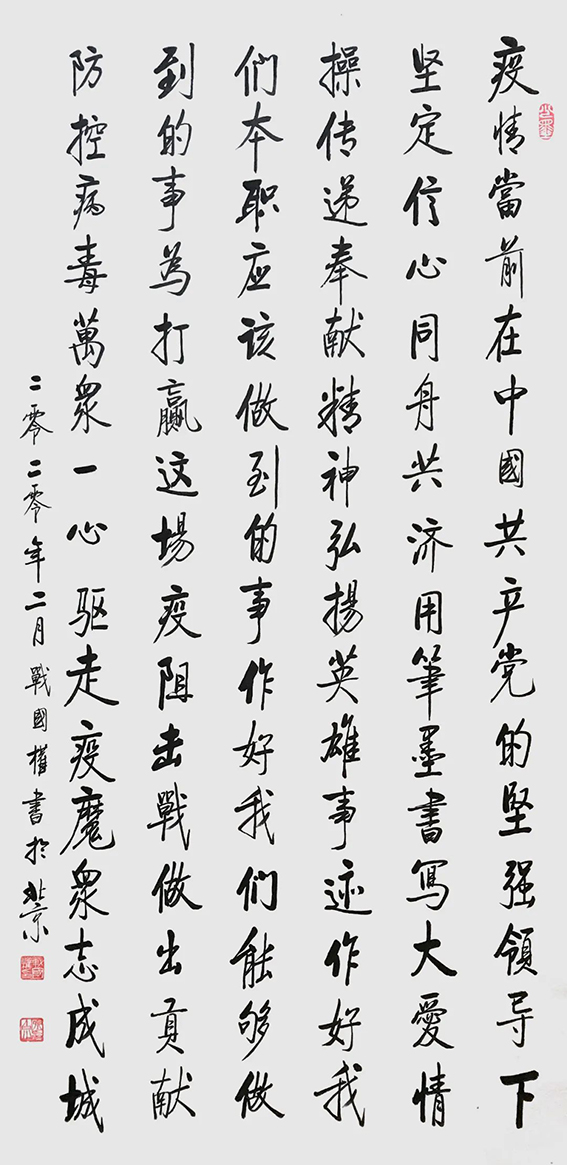 疫情當前在中國共产党的堅强領导下
坚定信心同舟共济用筆墨書寫大愛情
操传递奉献精神弘揚英雄事迹作好我
们本职应该做到的事作好我们能够做
到的事為打赢这場疫阻击戰做出貢献
防控病毒萬衆一心驱走疫魔衆志成城
二零二零年二月戰國權書於北京